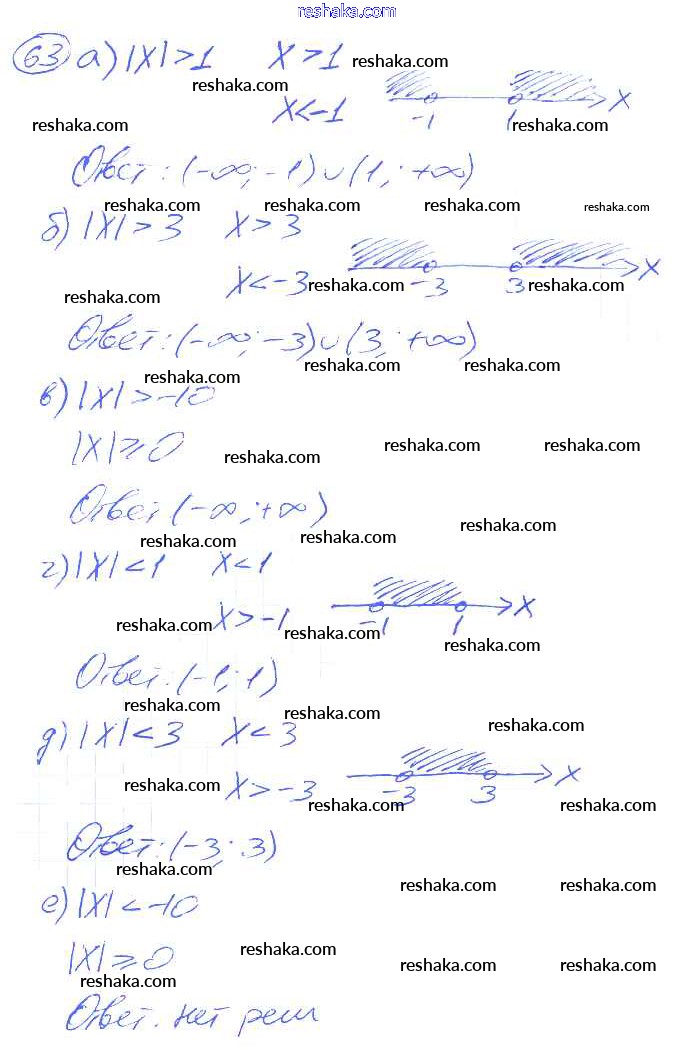 reshaka.com
63 а) |X|>1 X>1 reshaka.com
reshaka.com
X<-1 -1 1 X
reshaka.com reshaka.com
Ответ: (-∞; -1)∪(1; +∞)
reshaka.com reshaka.com reshaka.com reshaka.com
б) |X|>3 X>3 reshaka.com
X<-3 reshaka.com -3 3 reshaka.com X
reshaka.com
Ответ: (-∞; -3)∪(3; +∞)
reshaka.com reshaka.com reshaka.com
в) |X|>-10
|X|⩾0 reshaka.com reshaka.com reshaka.com
Ответ (-∞; +∞)
reshaka.com reshaka.com reshaka.com
г) |X|<1 X<1
reshaka.com X>-1 reshaka.com -1 1 X
reshaka.com
Ответ: (-1; 1)
reshaka.com reshaka.com
д) |X|<3 X<3 reshaka.com
reshaka.com X>-3 -3 3 X
reshaka.com reshaka.com
Ответ: (-3; 3)
reshaka.com reshaka.com reshaka.com
е) |X|<-10
|X|⩾0 reshaka.com reshaka.com reshaka.com
reshaka.com
Ответ. нет реш